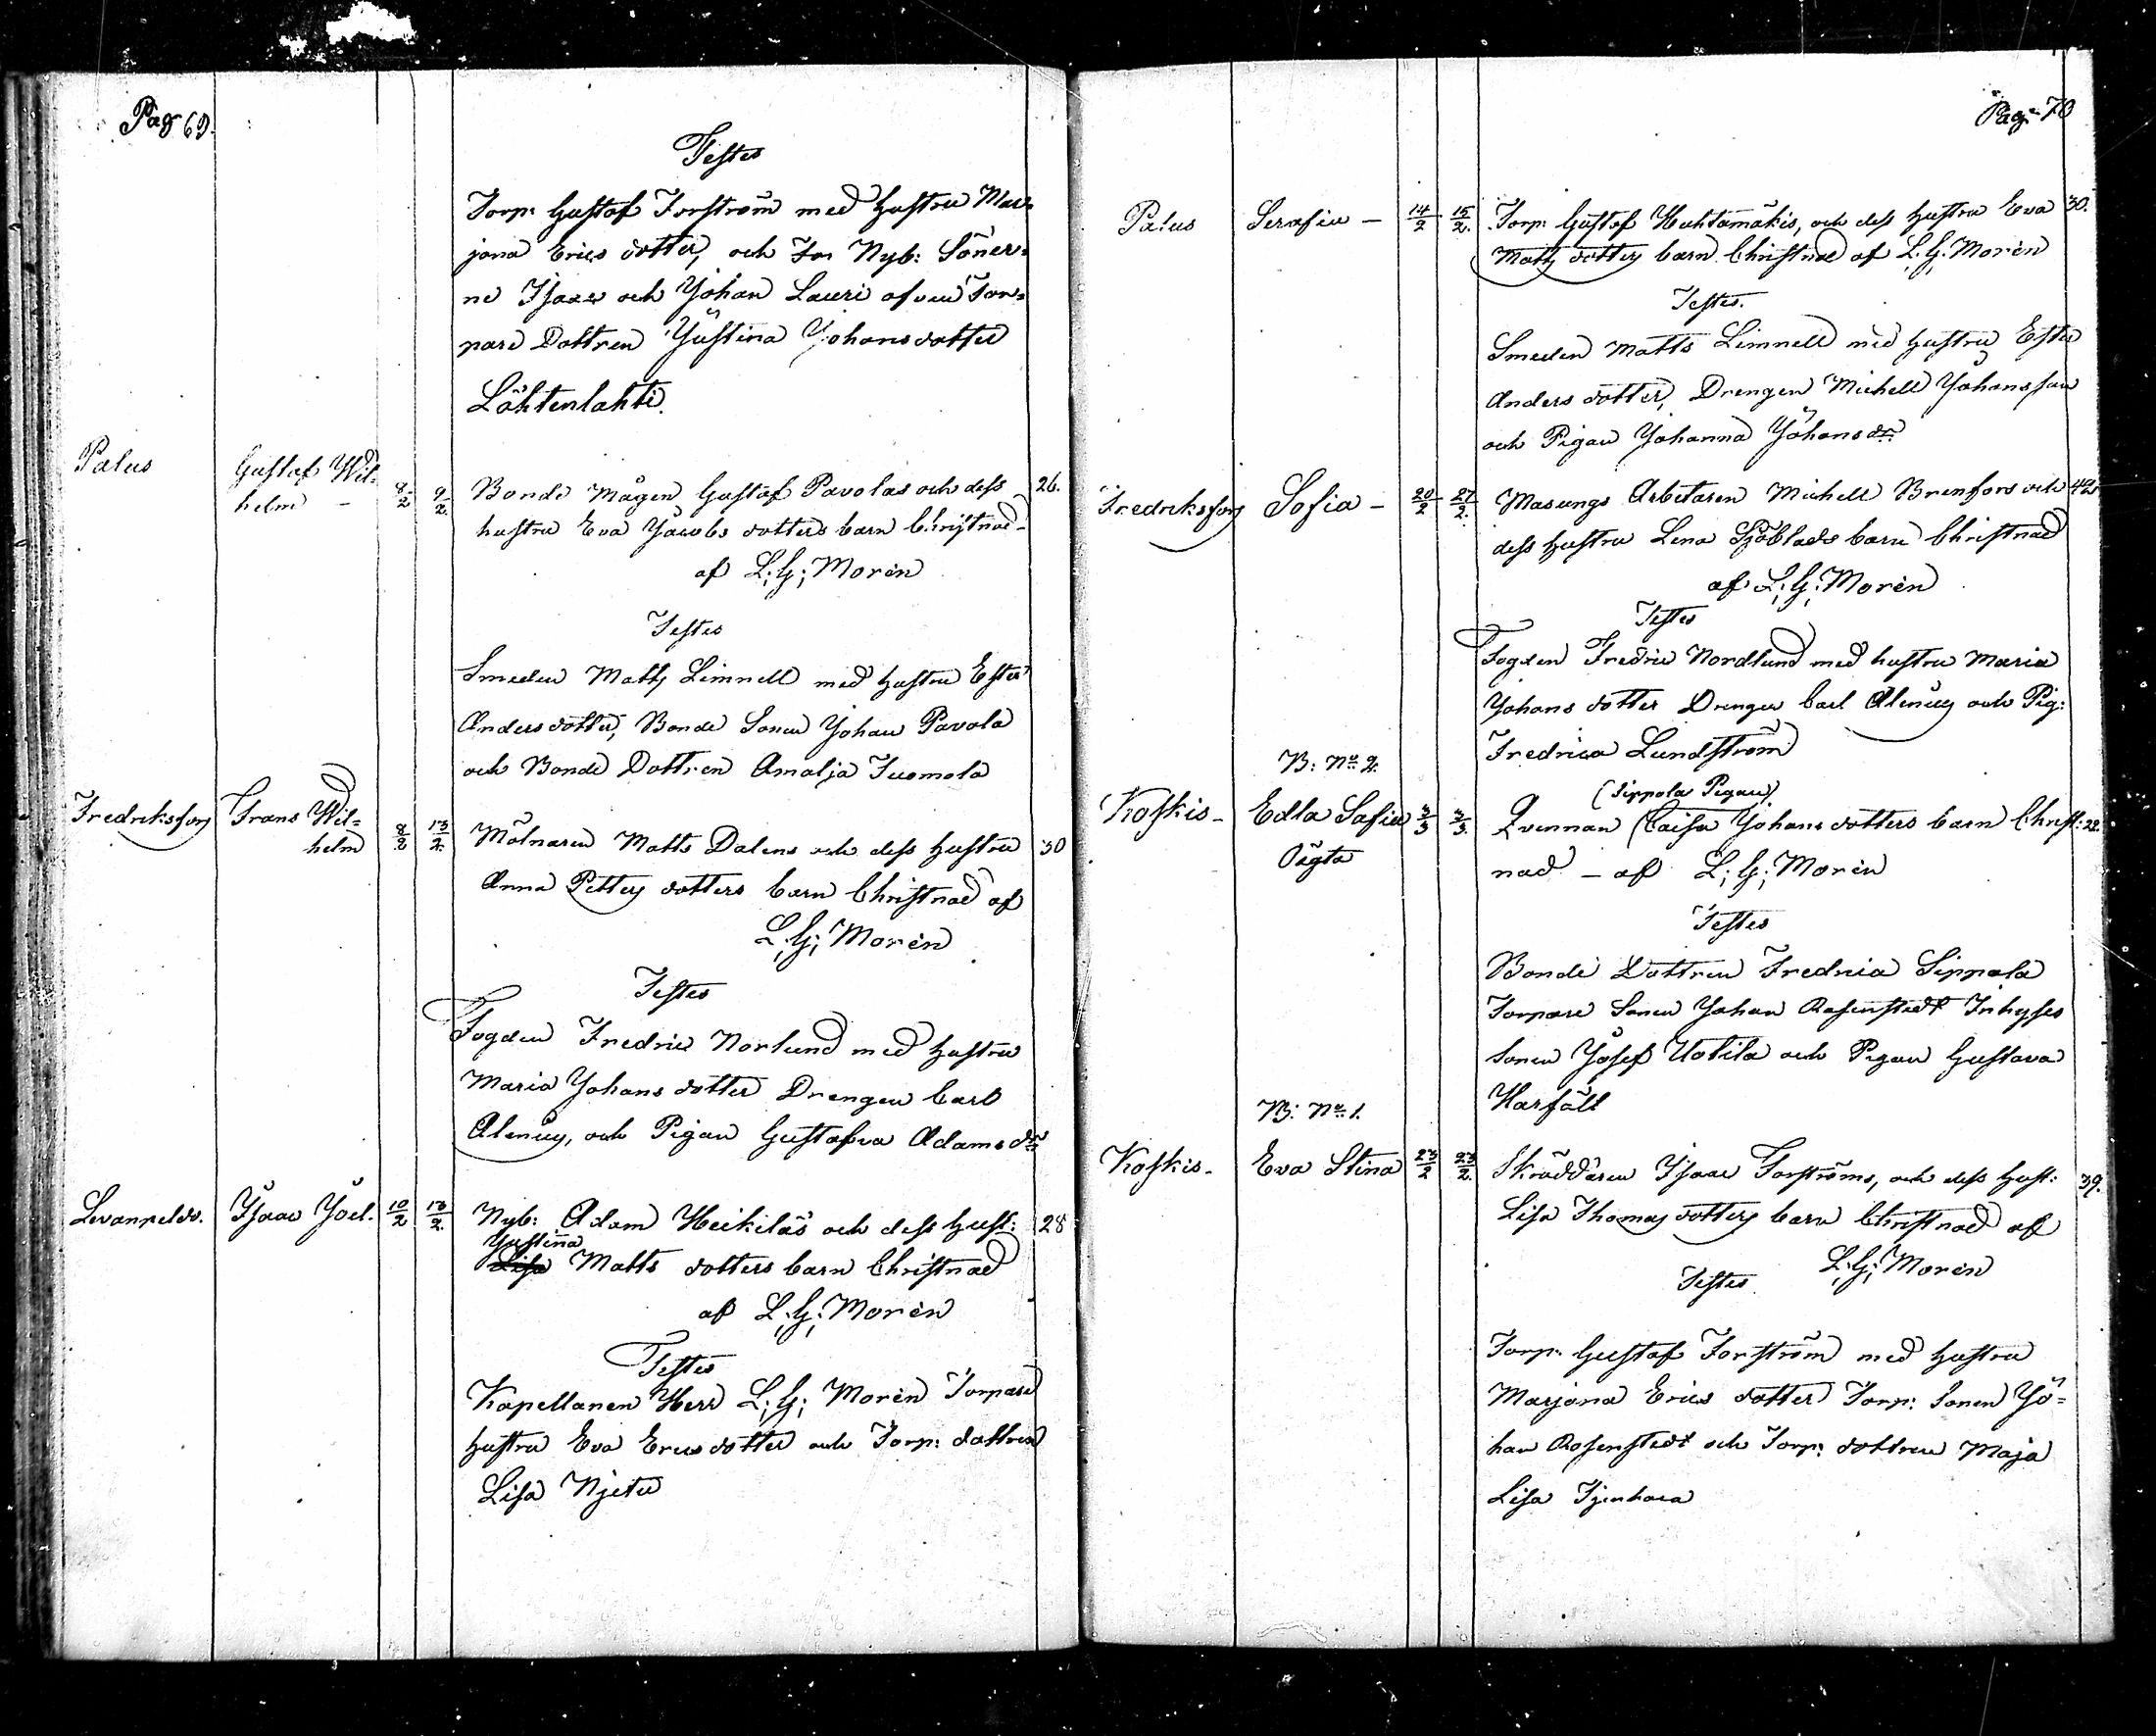 Pag 69.
Testes
Torp: Gustaf Forström med hustru Mar=
jana Erics dotter, och Tor Nyb: Söner=
ne Isaac och Johan Lauri afven Tor=
pare Dottren Justina Johans dotter
Lähtenlahti.
Palus
Gustaf Wil=
helm -
8/2 9/2.
Bonde Mågen Gustaf Pavolas och dess 26.
hustru Eva Jacobs dotters barn Christnad -
af L; G; Morén
Testes
Smeden Matts Limnell med hustru Ester
Anders dotter, Bonde Sonen Johan Pavola
och Bonde Dottren Amalja Tuomola
Fredriksfors Frans Wil=
helm
8/2 13/2.
Mölnaren Matts Dalens och dess hustru 30
Anna Petters dotters barn Christnad af
L; G; Morén
Testes
Fogden Fredric Norlund med hustru
Maria Johans dotter Drengen Carl
Alenius, och Pigan Gustafva Adams dr
Levanpeldo. Isaac Joel. 10/2 13/2.
Nyb: Adam Heikiläs och dess hust: 28
Justina
Lisa Matts dotters barn Christnad
af L; G; Morén
Testes
Kapellanen Herr L; G; Morén Torpare
hustru Eva Erics dotter och Torp: dottren
Lisa Njetu
Pag: 70
Palus Serafia - 14/2 15/2.
Torp: Gustaf Huhtamäkis, och dess hustru Eva 30.
Matts dotters barn Christnad af L. G. Morén
Testes.
Smeden Matts Limnell med hustru Ester
Anders dotter, Drengen Michell Johansson
och Pigan Johanna Johans dr
Fredriksfors Sofia - 20/2 27/2.
Masungs Arbetaren Michell Brenfors och 42
dess hustru Lena Sjöblads barn Christnad
af L; G; Morén
Testes
Fogden Fredric Nordlund med hustru Maria
Johans dotter Drengen Carl Alenius och Pig:
Fredrica Lundström
B: No 2.
(Sippola Pigan)
Koskis - Edla Sofia 3/3 3/3.
Oägta
Qvennan Caisa Johans dotters barn Christ: 22.
nad - af L; G; Morén
Testes
Bonde Dottren Fredrica Sippola
Torpare Sonen Johan Rosenstedt Inhyses
Sonen Josef Uotila och Pigan Gustava
Harfält
B: No 1.
Koskis - Eva Stina 23/2 23/2.
Skräddaren Isaac Forströms, och dess hust: 39.
Lisa Thomas dotters barn Christnad af
L; G; Morén
Testes
Torp: Gustaf Forström med hustru
Marjana Erics dotter Torp: Sonen Jo=
han Rosenstedt och Torp: dottren Maja
Lisa